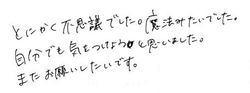 とにかく不思議でした。魔法みたいでした。
自分でも気をつけようと思いました。
またお願いしたいです。